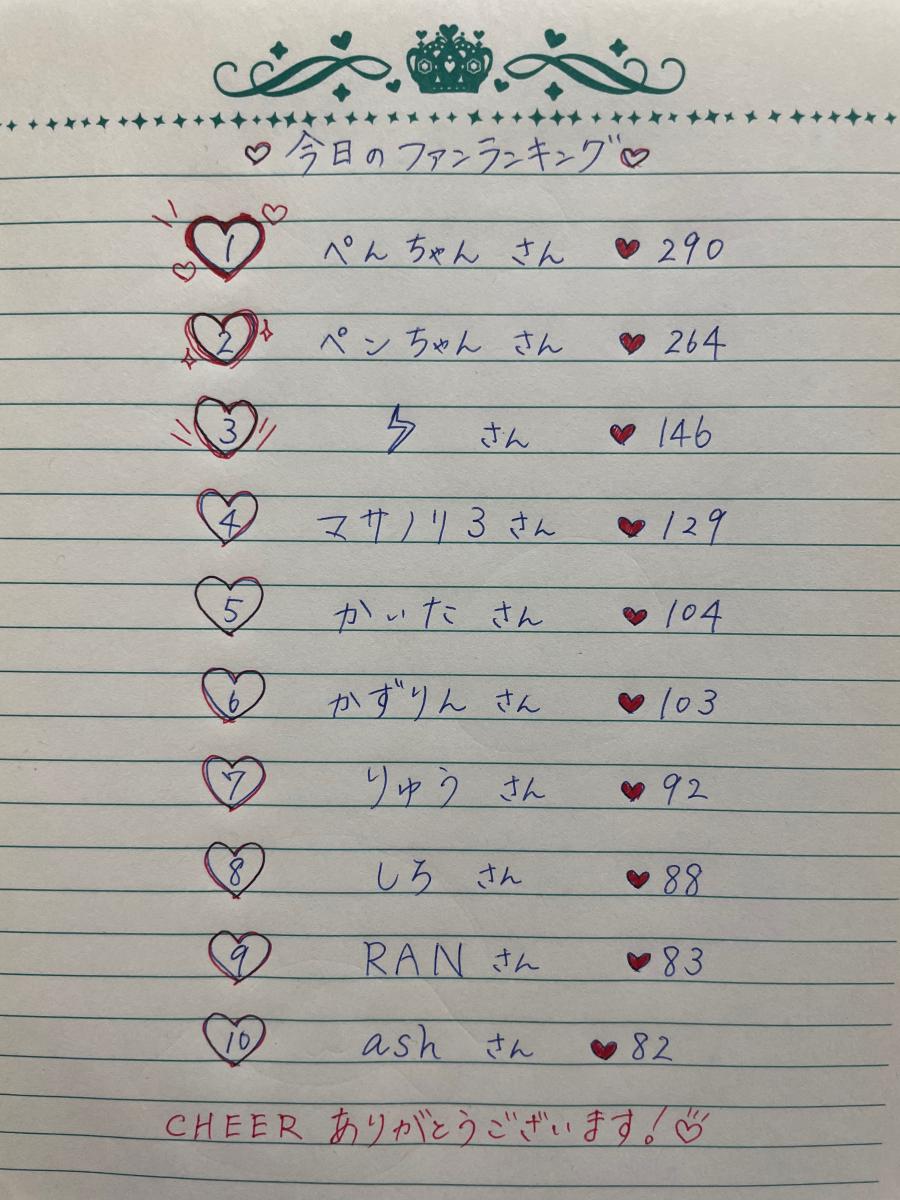 ♡今日のファンランキング♡
1 ぺんちゃん さん ♥ 290
2 ペンちゃん さん ♥ 264
3 ⚡ さん ♥ 146
4 マサノリ3 さん ♥ 129
5 かいた さん ♥ 104
6 かずりん さん ♥ 103
7 りゅう さん ♥ 92
8 しろ さん ♥ 88
9 RAN さん ♥ 83
10 ash さん ♥ 82
CHEER ありがとうございます!♡